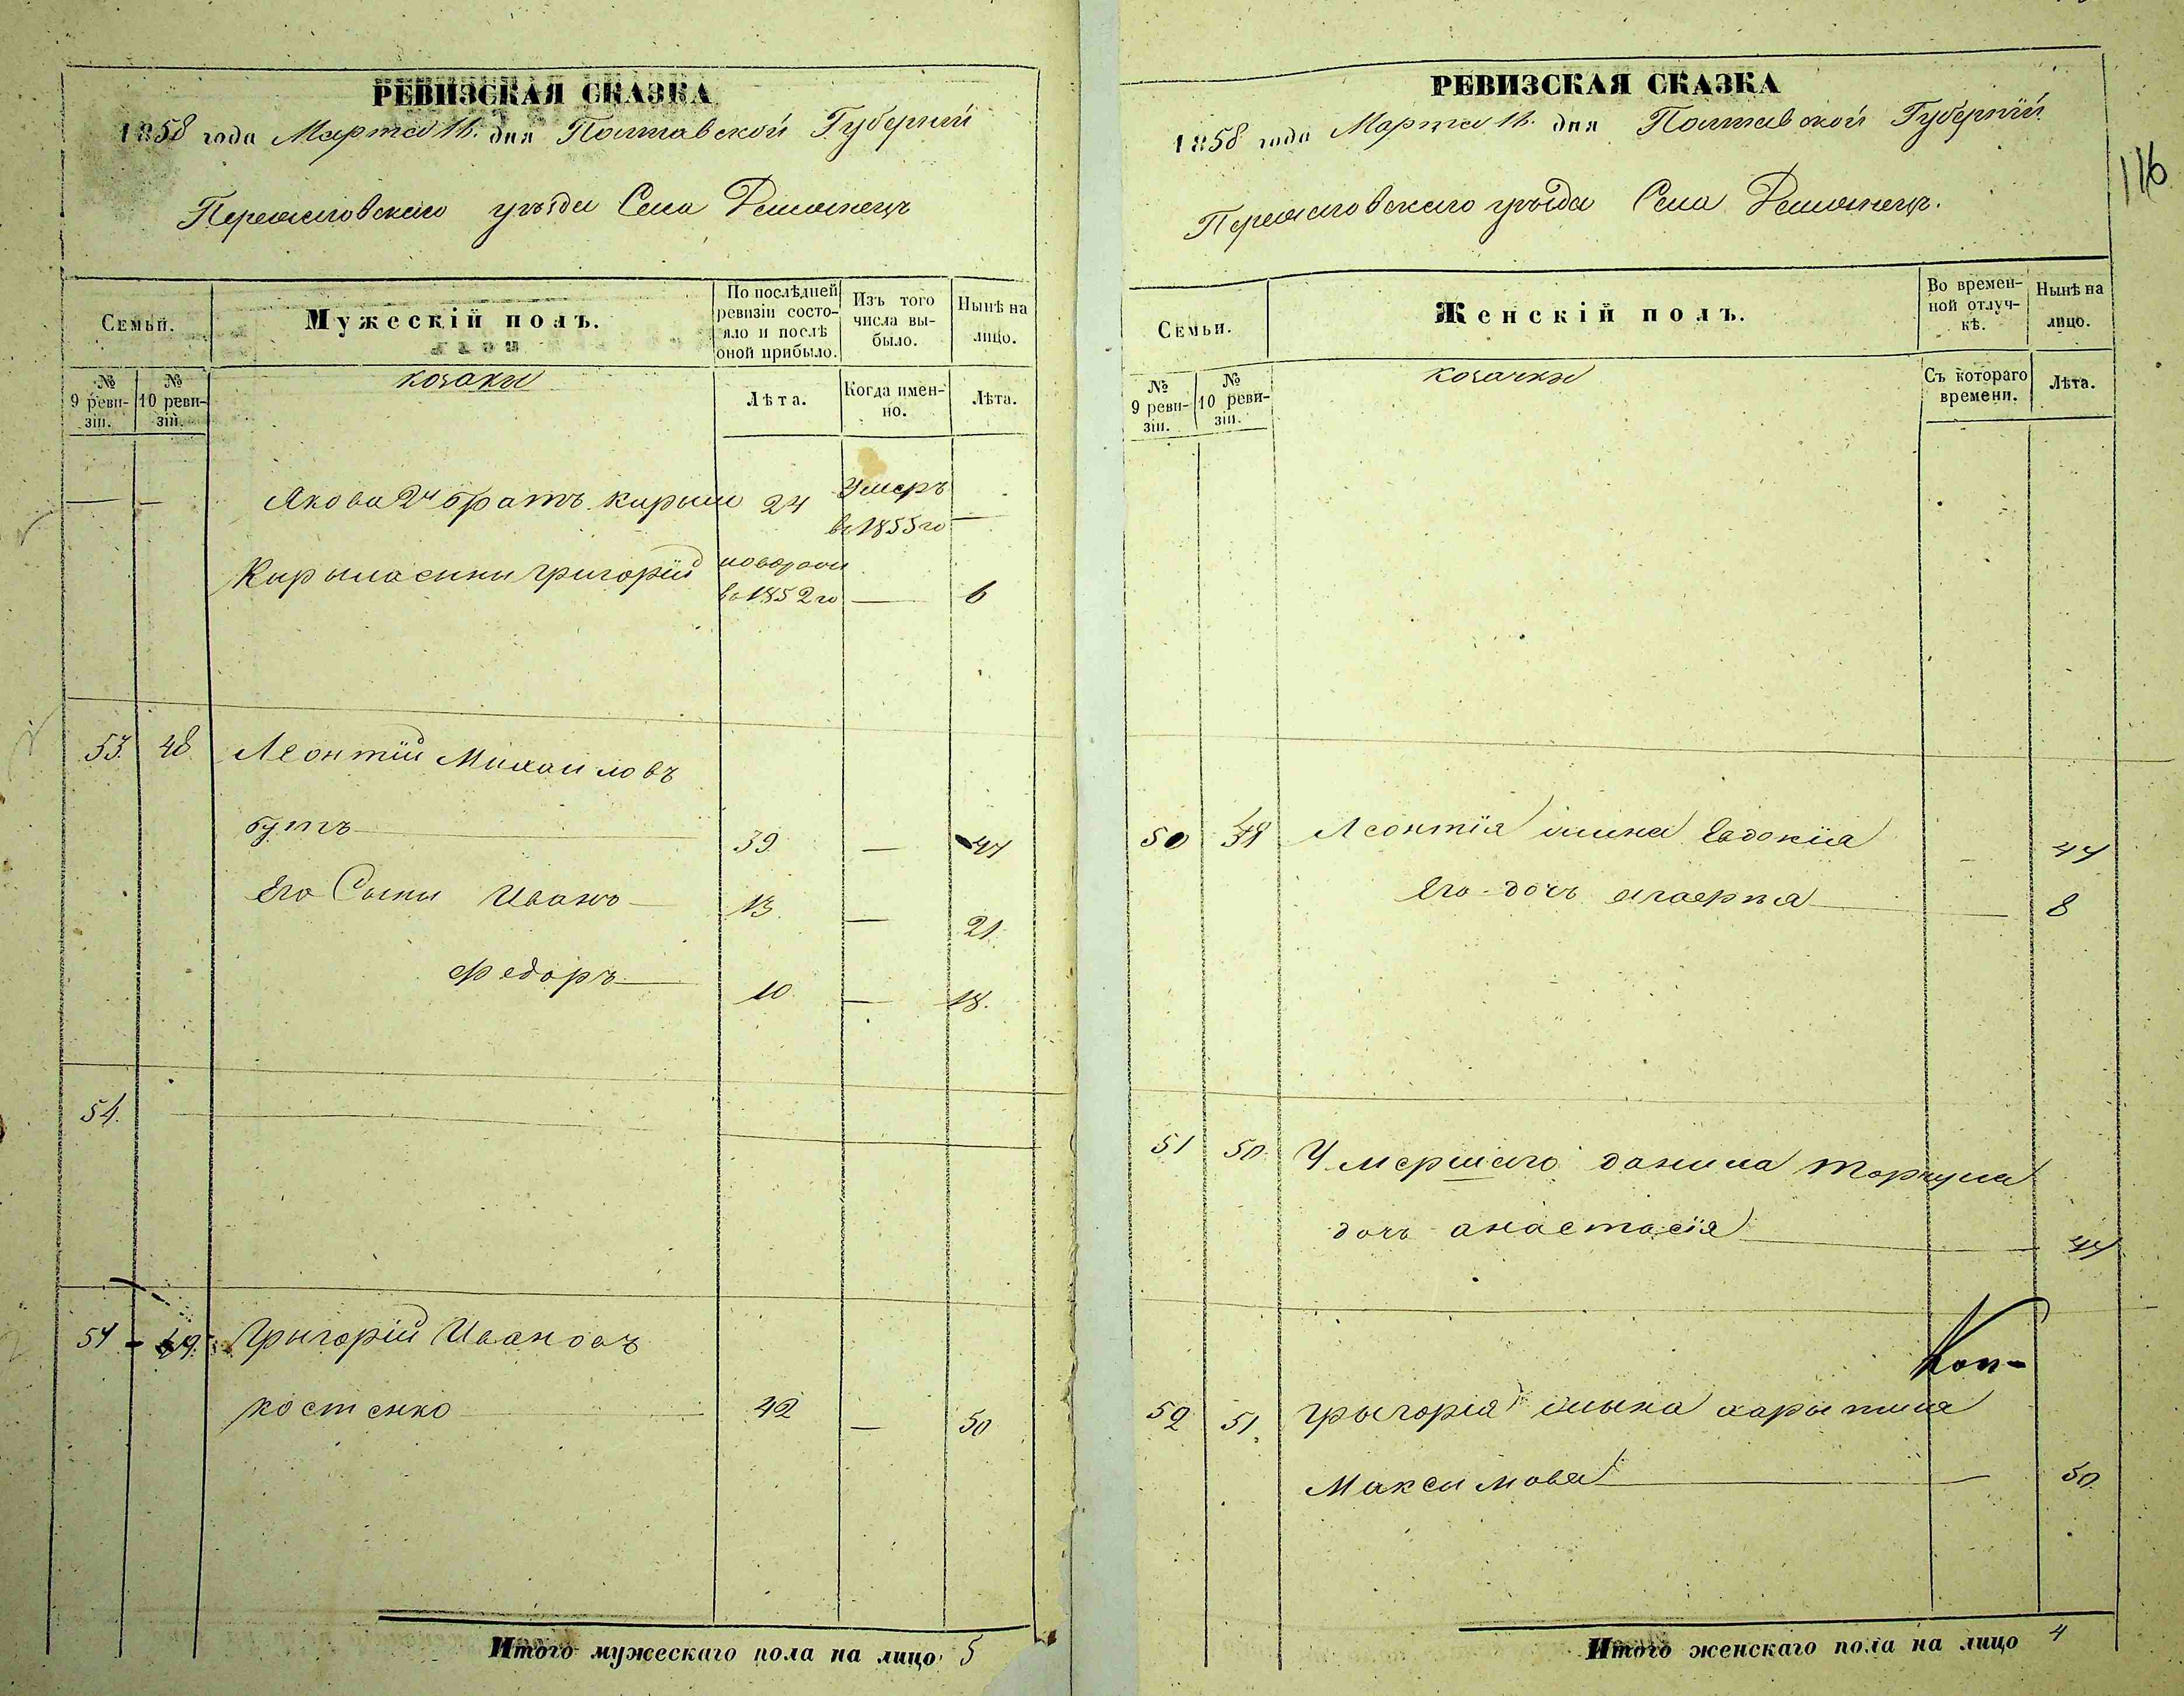 РЕВИЗСКАЯ СКАЗКА
1858 года Марта 18. дня Полтавской Губерніи
Переяславскаго уѣзда Села
Семьи.
Мужескій полъ.
По послѣдней ревизіи состояло и послѣ оной прибыло.
Изъ того числа выбыло.
Нынѣ на лицо.
№ 9 ревизіи.
№ 10 ревизіи.
козаки
Лѣта.
Когда именно.
Лѣта.
Якова 2й братъ Кирыло 24 Умеръ
в 1855 го
Кирыла сынъ Григорій
в 1852 го — 6
53. 48. Леонтій Михаиловъ
бутъ 39 — 47
Его Сыны Иванъ 13. — 21.
Федоръ 10 — 18.
54.
Григорій Ивановъ
костенко 42 — 50
Итого мужескаго пола на лицо 5
РЕВИЗСКАЯ СКАЗКА
1858 года Марта 18. дня Полтавской Губерніи
Переяславскаго уѣзда Села
116
Семьи.
Женскій полъ.
Во временной отлучкѣ.
Нынѣ на лицо.
№ 9 ревизіи.
№ 10 ревизіи.
козачки
Съ котораго времени.
Лѣта.
50 49 Леонтія жена Евдокія — 47
Его дочь — 8
51 50. Умершаго данила
дочь анастасія — 44
Коп-
52 51. Грыгорія жына харытина
Максимова — 50
Итого женскаго пола на лицо 4